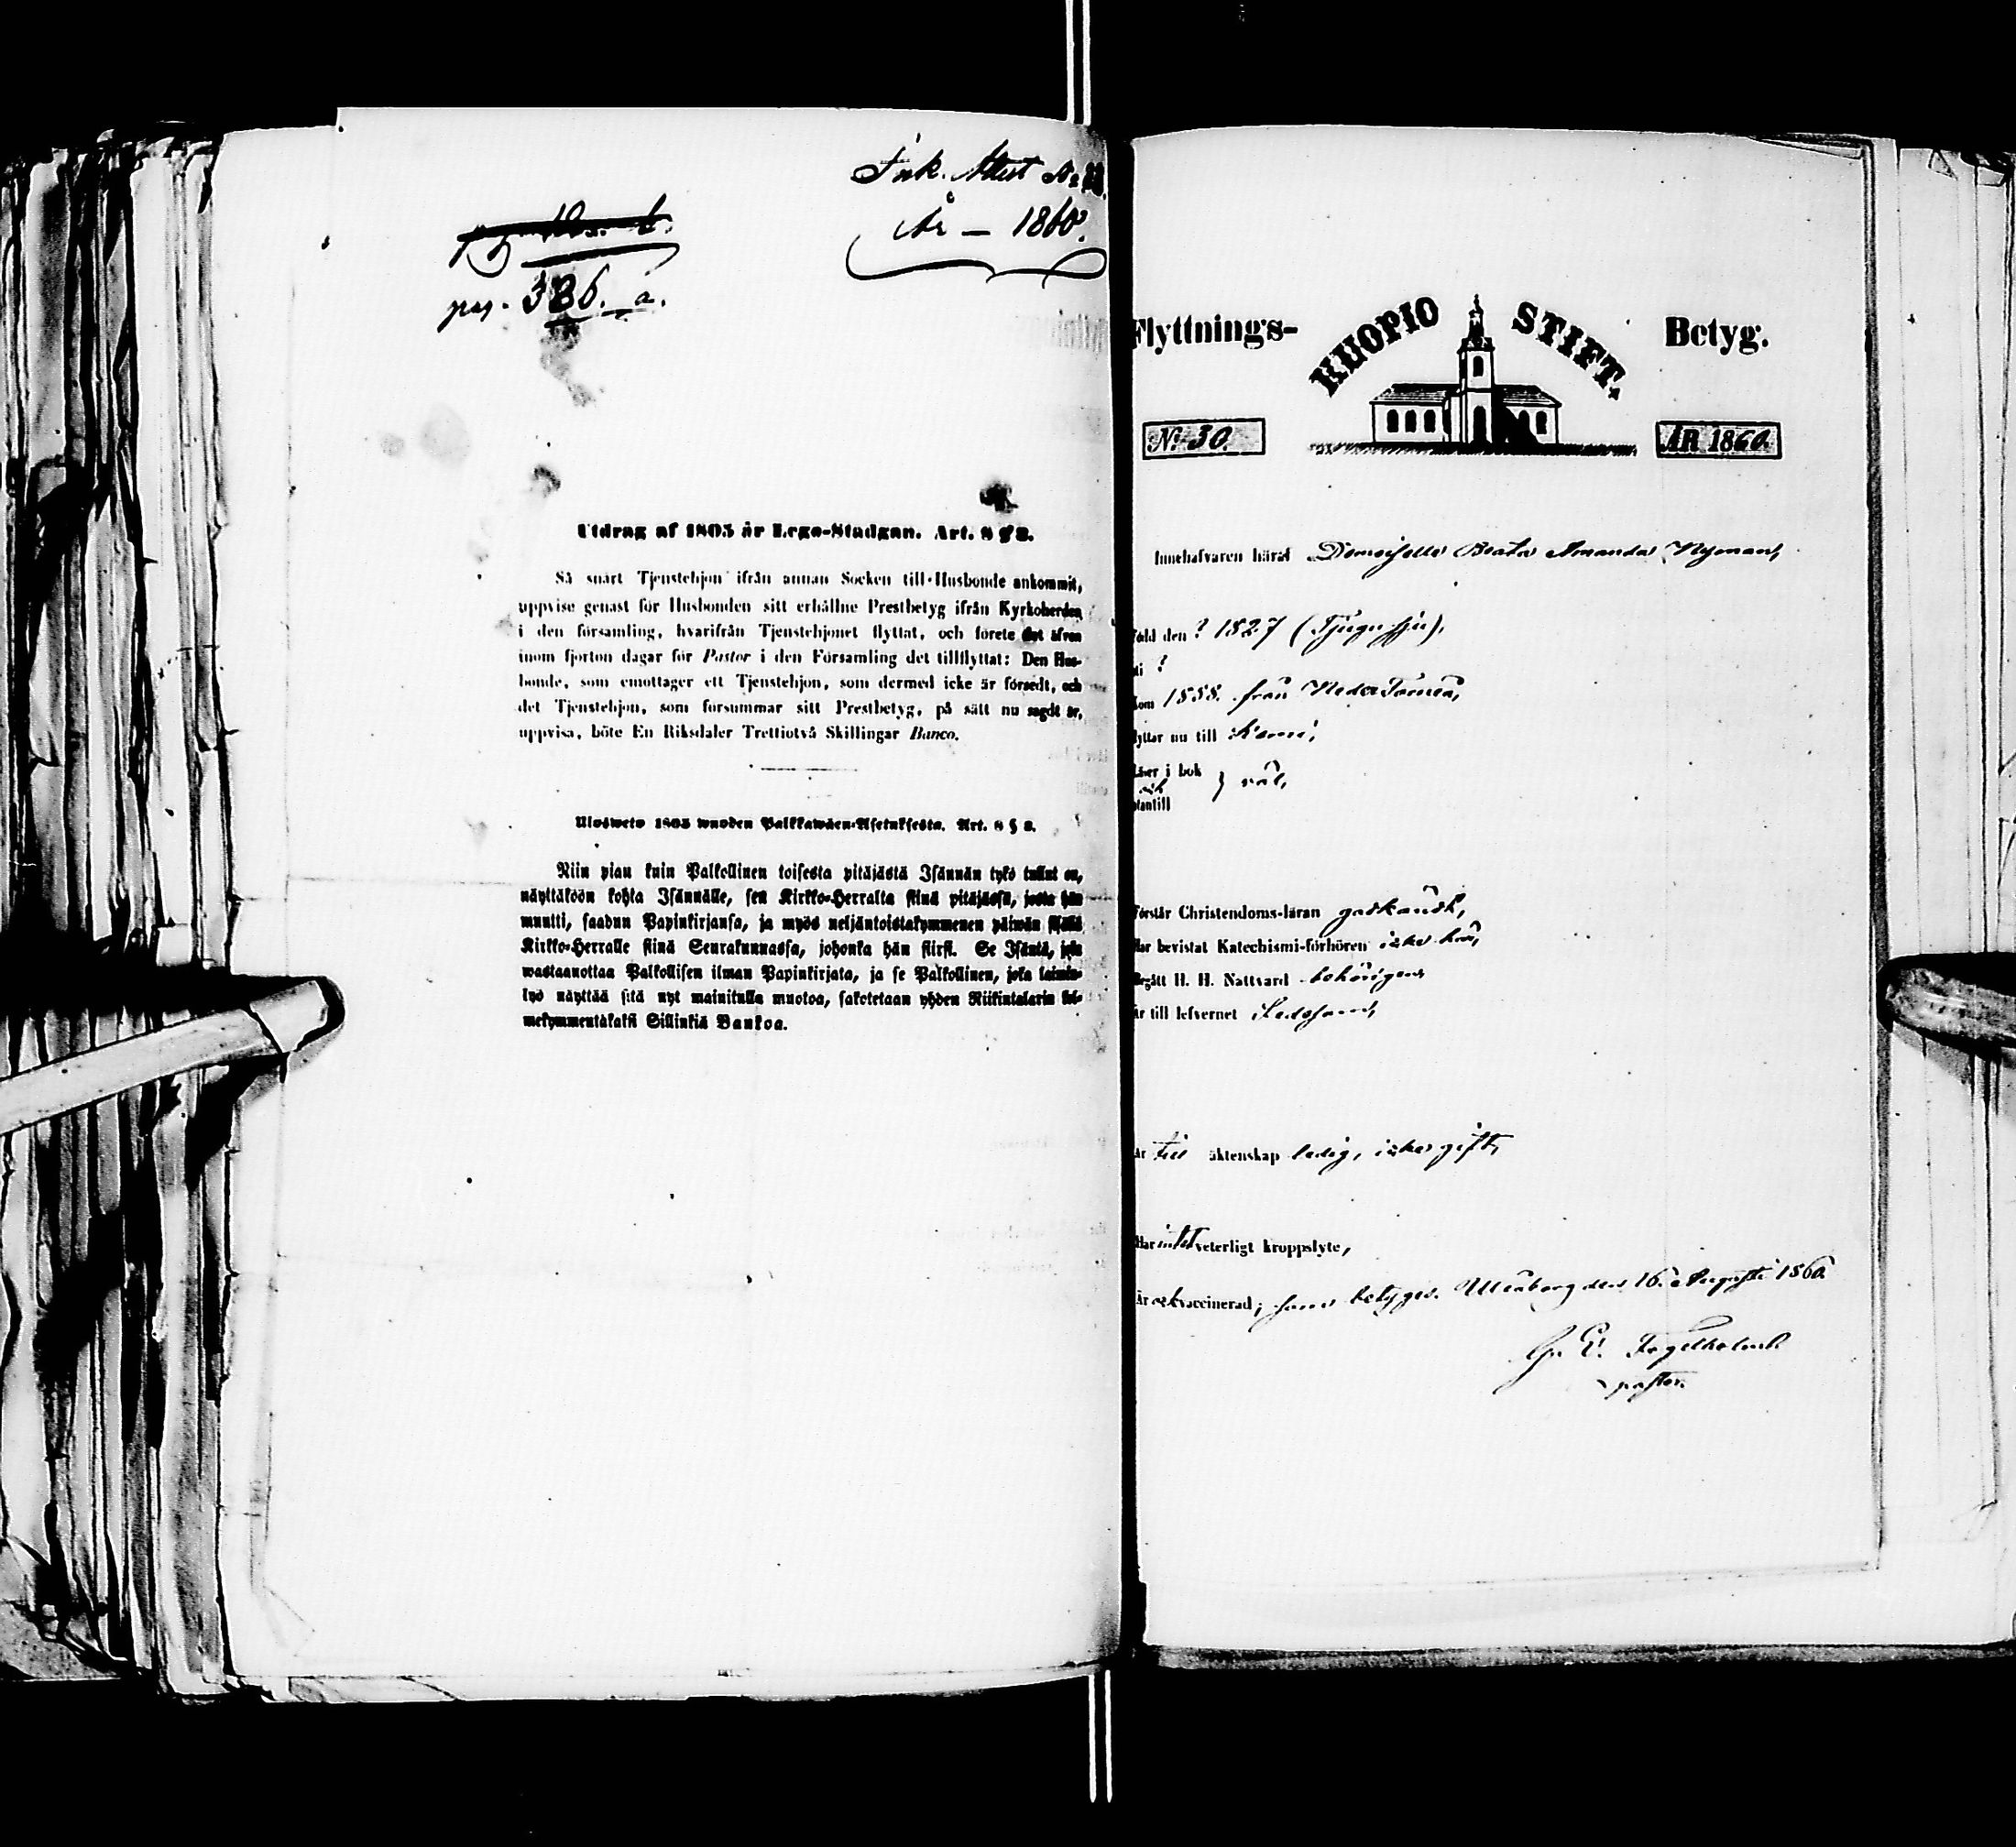 Ink. Attest No
År – 1860.
pag. 386. a.
Utdrag af 1805 år Lego-Stadgan. Art. 8 § 2.
Så snart Tjenstehjon ifrån annan Socken till Husbonde ankommit,
uppvise genast för Husbonden sitt erhållne Prestbetyg ifrån Kyrkoherden
i den församling, hvarifrån Tjenstehjonet flyttat, och förete det äfven
inom fjorton dagar för Pastor i den Församling det tillflyttat: Den Hus-
bonde, som emottager ett Tjenstehjon, som dermed icke är försedt, och
det Tjenstehjon, som försummar sitt Prestbetyg, på sätt nu sagdt är,
uppvisa, böte En Riksdaler Trettiotvå Skillingar Banco.
Ulosweto 1805 wuoden Palkkawäen-Asetuksesta. Art. 8 § 2.
Niin pian kuin Palkollinen toisesta pitäjästä Isännän tykö tullut on,
näyttäköön kohta Isännälle, sen Kirkko-Herralta siinä pitäjässä, josta hän
muutti, saadun Papinkirjansa, ja myös neljäntoistakymmenen päiwän sisällä
Kirkko-Herralle siinä Seurakunnassa, johonka hän siirsi. Se Isäntä, joka
wastaanottaa Palkollisen ilman Papinkirjata, ja se Palkollinen, joka laimin-
lyö näyttää sitä nyt mainitulla muotoa, sakotetaan yhden Riikintalarin kol-
mekymmentäkaksi Sillinkiä Bankoa.
Flyttnings- KUOPIO STIFT. Betyg.
No 30. ÅR 1860.
Innehafvaren häraf Demoiselle Beata Amanda Nyman,
född den ? 1827 (Tjugusju),
i ?
kom 1858. från Neder Torneå,
flyttar nu till Kemi,
Läser i bok
och } väl,
utantill
Förstår Christendoms-läran godkändt,
Har bevistat Katechismi-förhören icke här,
Begått H. H. Nattvard behörigen
Är till lefvernet Sedesam,
Är till äktenskap ledig, icke gift,
Har intet veterligt kroppslyte,
Är ock vaccinerad; som betygas. Uleåborg den 16. Augusti 1860.
E. Fogelholm
pastor.